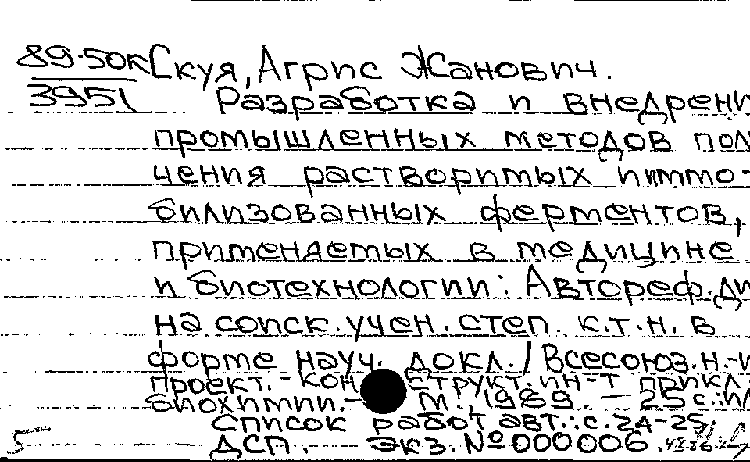 89-50к Скуя, Агрис Жанович.
3951 Разработка и внедрени
промышленных методов пол
чения растворимых иммо-
билизованных ферментов,
применяемых в медицине
и биотехнологии: Автореф. ди
на соиск. учен. степ. к.т.н. в
форме науч. докл. / Всесоюз. н.-и
проект.-конструкт. ин-т прикл.
биохимии. - М., 1989. - 25 с.: ил
Список работ авт.: с. 24-25.
5 ДСП. - Экз. № 000006.